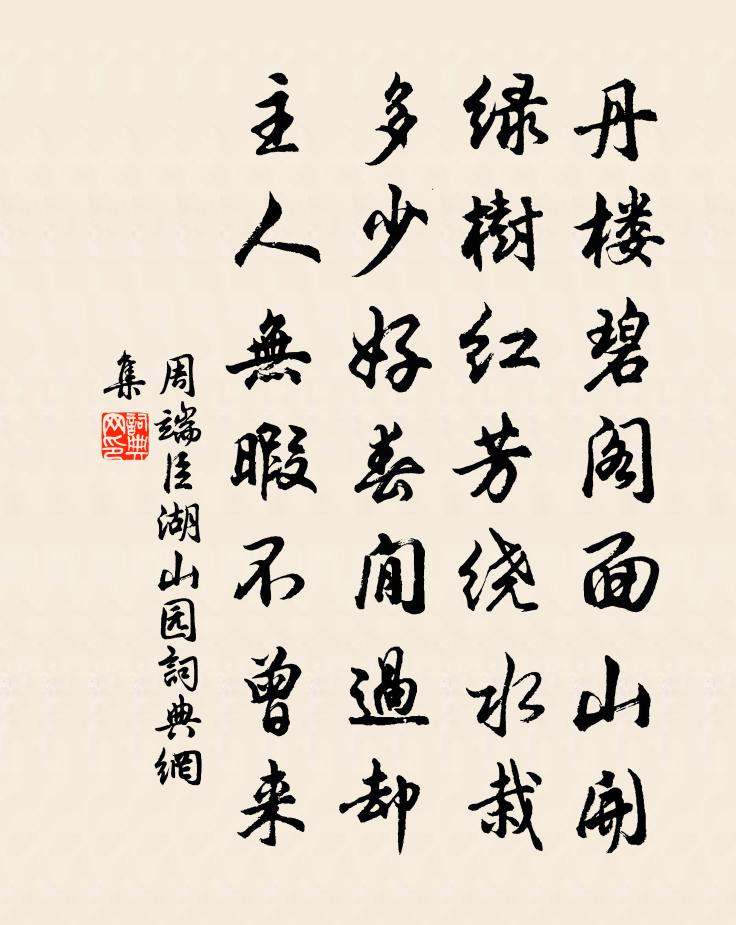 丹楼碧阁面山开
绿樹红芳绕水栽
多少好春閒過却
主人無暇不曾来
周端臣湖山园詞典網
集
詞典
网印